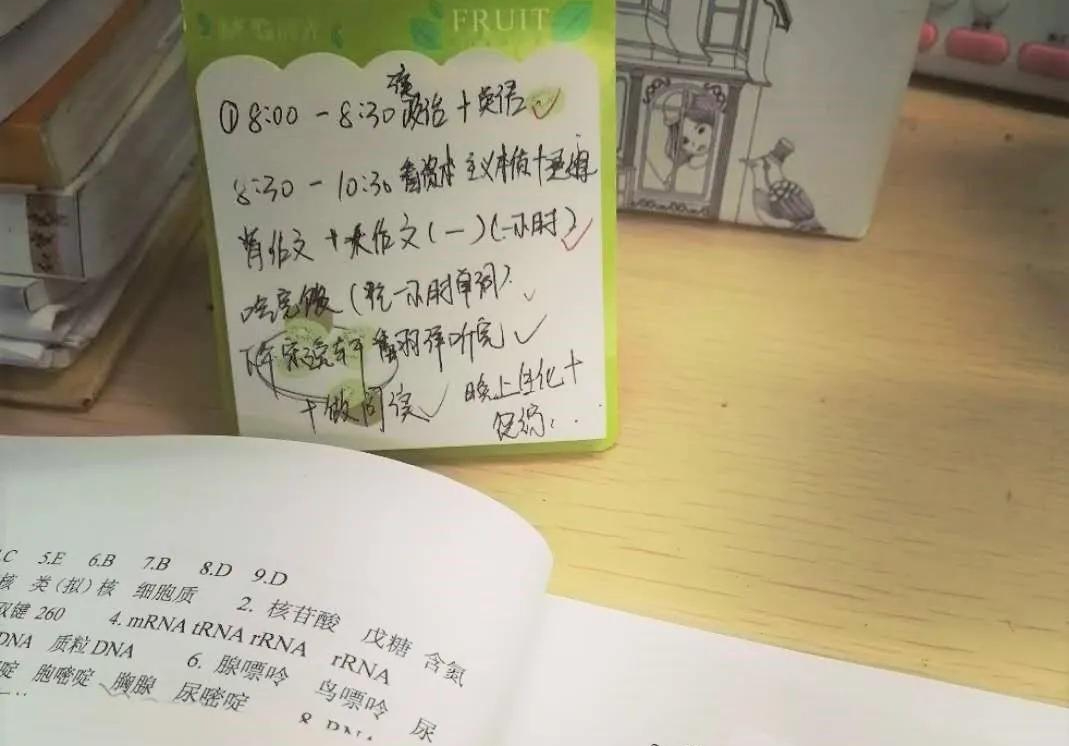 FRUIT
①8:00-8:30 读政治+英语
8:30-10:30 看资本主义本质+
背作文+大作文(一)(一小时)
吃完饭(背一小时单词)
下午 听完
+做阅读 晚上生化+
.C 5.E 6.B 7.B 8.D 9.D
核 类(拟)核 细胞质 2. 核苷酸 戊糖 含氮
双键 260 4. mRNA tRNA rRNA rRNA
DNA 质粒DNA 6. 腺嘌呤 鸟嘌呤 尿
啶 胞嘧啶 胸腺 尿嘧啶